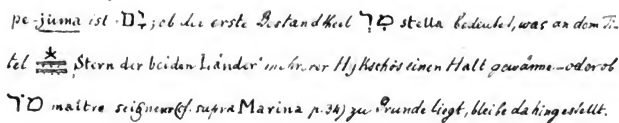 pe-juma ist יָם; ob der erste Bestandtheil מר stella bedeutet, was an dem Ti-
tel „Stern der beiden Länder“ mehrerer Hykschôs einen Halt gewänne – oder ob
מר maître seigneur (cf. supra Marina p. 34) zu Grunde liegt, bleibe dahingestellt.